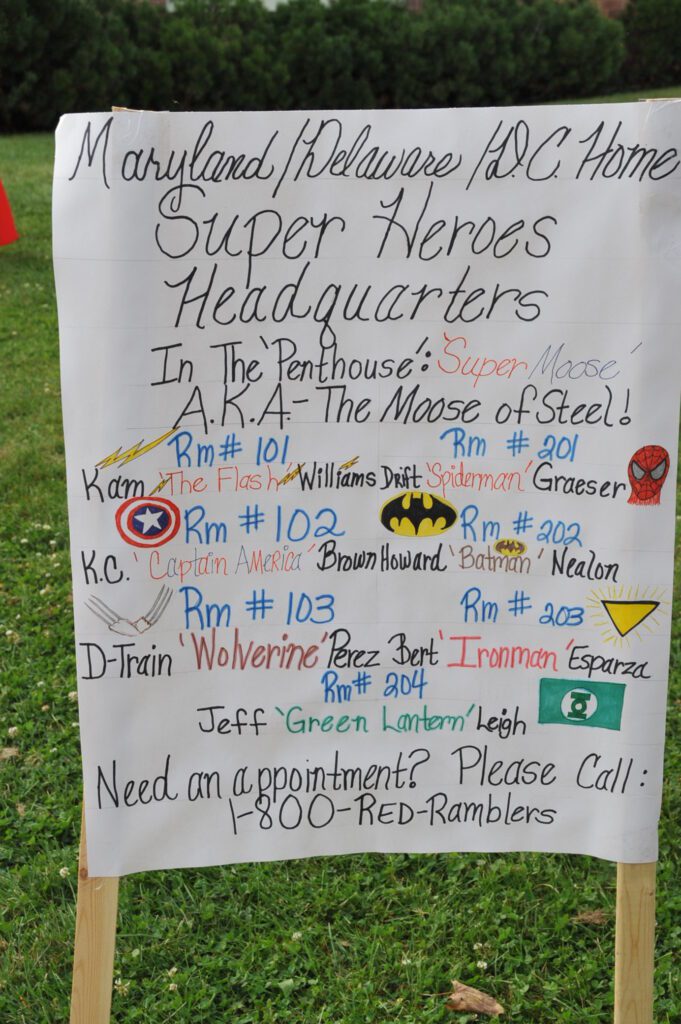 Maryland/Delaware/D.C. Home
Super Heroes
Headquarters
In The 'Penthouse': 'Super Moose'
A.K.A.-The Moose of Steel!
Rm# 101 Rm # 201
Kam 'The Flash' Williams Drift 'Spiderman' Graeser
Rm # 102 Rm # 202
K.C. 'Captain America' Brown Howard 'Batman' Nealon
Rm # 103 Rm # 203
D-Train 'Wolverine' Perez Bert 'Ironman' Esparza
Rm# 204
Jeff 'Green Lantern' Leigh
Need an appointment? Please Call:
1-800-RED-Ramblers